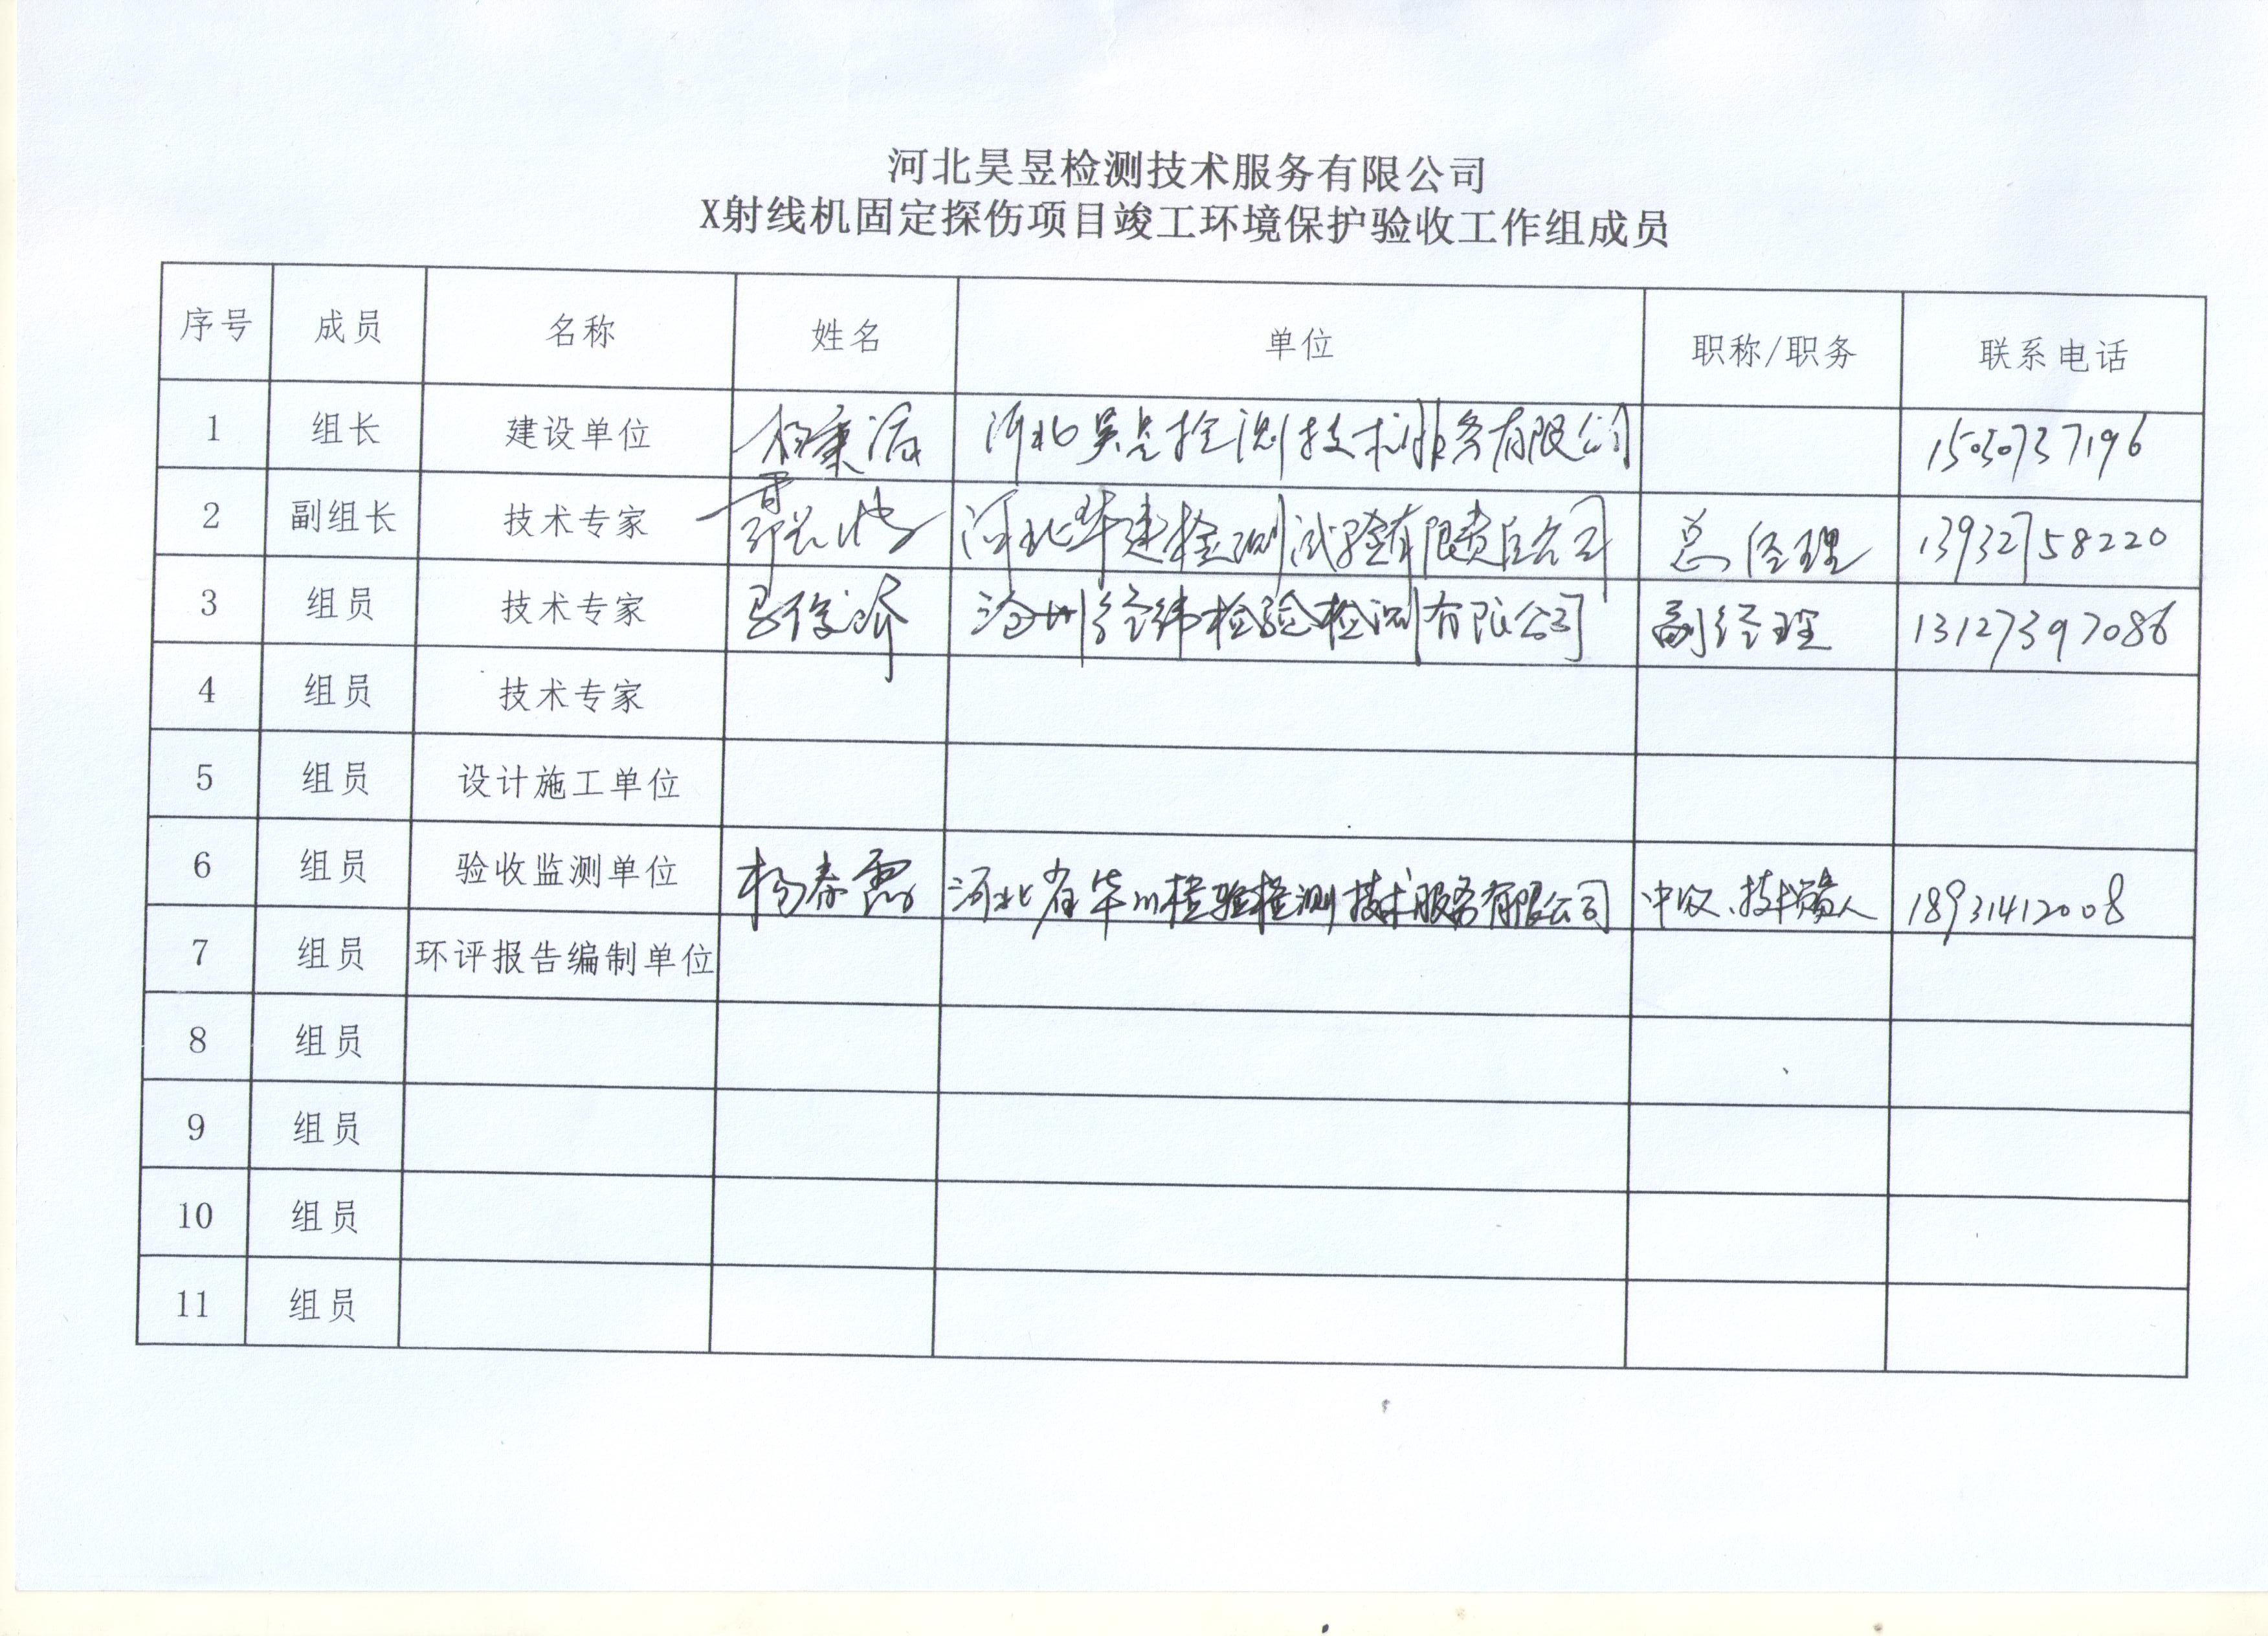 河北昊昱检测技术服务有限公司
X射线机固定探伤项目竣工环境保护验收工作组成员
序号 成员 名称 姓名 单位 职称/职务 联系电话
1 组长 建设单位 河北昊昱检测技术服务有限公司 15030737196
2 副组长 技术专家 河北华建检测试验有限责任公司 总经理 13932758220
3 组员 技术专家 沧州经纬检验检测有限公司 副经理 13127397086
4 组员 技术专家
5 组员 设计施工单位
6 组员 验收监测单位 杨春霞 河北省华川检验检测技术服务有限公司 中级、技术负责人 18931412008
7 组员 环评报告编制单位
8 组员
9 组员
10 组员
11 组员